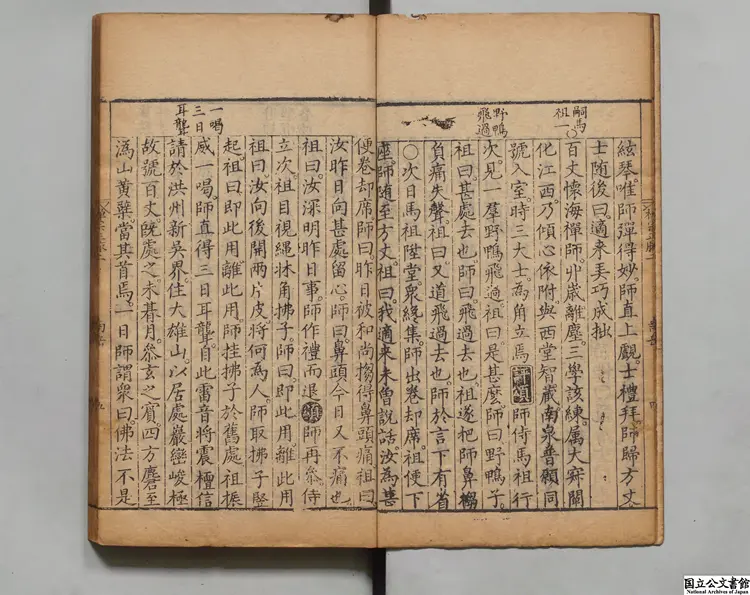 絃琴唯師彈得妙師直上覷士禮拜師歸方丈
士随後曰適来弄巧成拙
嗣馬
祖一
百丈懷海禪師丱歲離塵三學該練属大寂闡
化江西乃傾心依附與西堂智藏南泉普願同
號入室時三大士為角立焉評頌師侍馬祖行
野鴨
飛過
次見一羣野鴨飛過祖曰是甚麽師曰野鴨子
祖曰甚處去也師曰飛過去也祖遂把師鼻搊
負痛失聲祖曰又道飛過去也師於言下有省
○次日馬祖陞堂衆終集師出卷却席祖便下
座師随至方丈祖曰我適来未曾說話汝為甚
便卷却席師曰昨日被和尚搊得鼻頭痛祖曰
汝昨日向甚處留心師曰鼻頭今日又不痛也
祖曰汝深明昨日事師作禮而退頌師再叅侍
立次祖目視繩牀角拂子師曰即此用離此用
祖曰汝向後開兩片皮將何為人師取拂子竪
起祖曰即此用離此用師挂拂子於舊處祖振
一喝
三日
耳聾
威一喝師直得三日耳聾自此雷音將震檀信
請於洪州新吳界住大雄山以居處巖巒峻極
故號百丈既處之未朞月叅玄之賓四方麏至
溈山黃蘗當其首焉一日師謂衆曰佛法不是
国立公文書館
National Archives of Japan